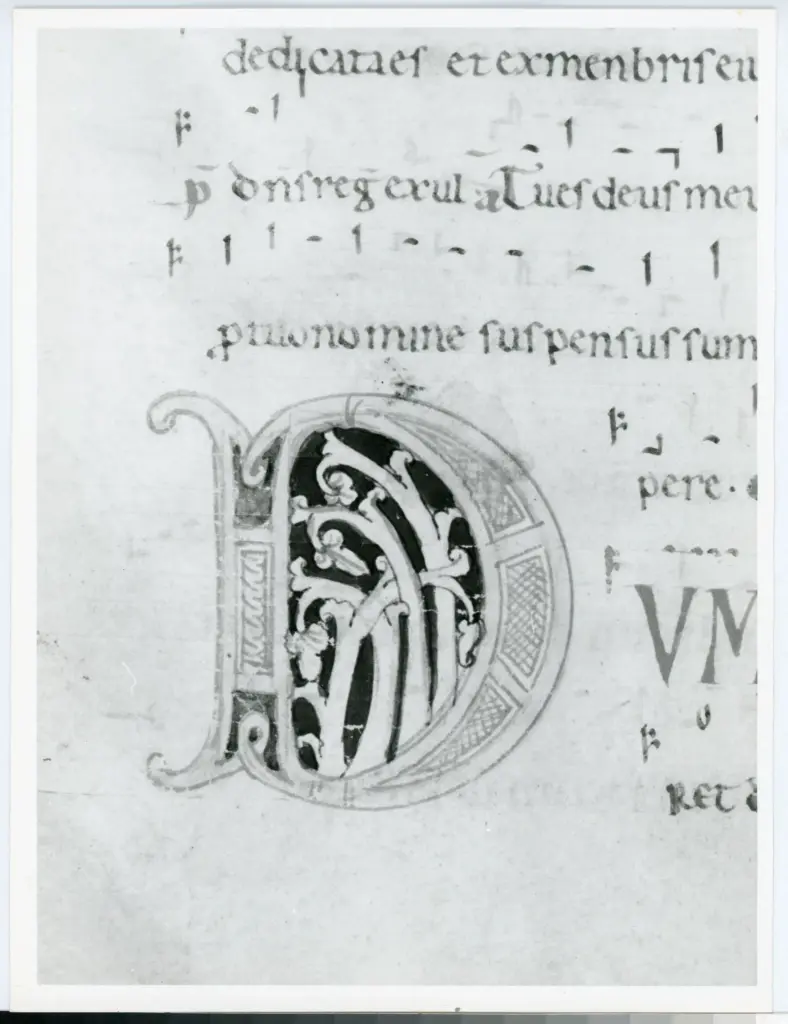 dedicataes et exmenbrises eu
p̄ dn̄s reḡ exul a Tu es deus meu
p tuo nomine suspensus sum
D
pere.
VM
RET d